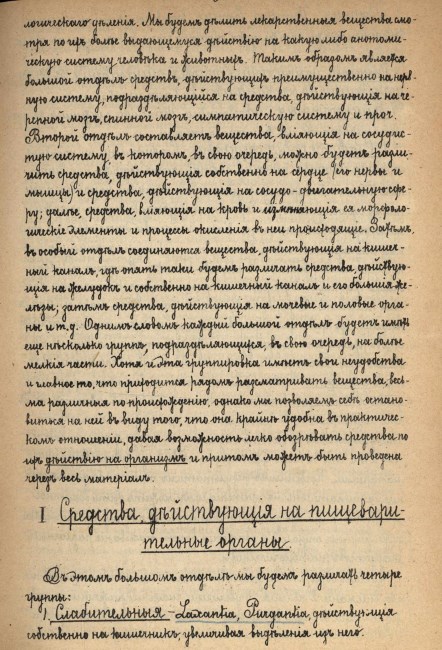 логическаго дѣленія. Мы будемъ дѣлить лекарственныя вещества смо-
тря по ихъ болѣе выдающемуся дѣйствію на какую либо анатоми-
ческую систему человѣка и животныхъ. Такимъ образомъ является
большой отдѣлъ средствъ, дѣйствующихъ преимущественно на нерв-
ную систему, подраздѣляющійся на средства, дѣйствующія на че-
репной мозгъ, спинной мозгъ, симпатическую систему и проч.
Второй отдѣлъ составляетъ вещества, вліяющія на сосудис-
тую систему, въ которомъ, въ свою очередь, можно будетъ разли-
чить средства, дѣйствующія собственно на сердце (его нервы и
мышцы) и средства, дѣйствующія на сосудо-двигательную сфе-
ру; далѣе, средства, вліяющія на кровь и измѣняющія ея морфоло-
гическіе элементы и процессы окисленія въ ней происходящіе. Затѣмъ,
въ особый отдѣлъ соединяются вещества, дѣйствующія на кишеч-
ный каналъ, гдѣ опять таки будемъ различать средства, дѣйствую-
щія на желудокъ и собственно на кишечный каналъ и его большія же-
лезы; затѣмъ средства, дѣйствующія на мочевые и половые орга-
ны и т.д. Однимъ словомъ каждый большой отдѣлъ будетъ имѣть
еще нѣсколько группъ, подраздѣляющихся, въ свою очередь, на болѣе
мелкія части. Хотя и эта группировка имѣетъ свои неудобства
и главное то, что приходится рядомъ разсматривать вещества, весь-
ма различныя по происхожденію, однако мы позволяемъ себѣ остано-
виться на ней въ виду того, что она крайнѣ удобна въ практичес-
комъ отношеніи, давая возможность легко обозрѣвать средства по
ихъ дѣйствію на организмъ и притомъ можетъ быть проведена
черезъ весь матеріалъ.
I Средства, дѣйствующія на пищевари-
тельные органы.
Въ этомъ большомъ отдѣлѣ мы будемъ различать четыре
группы:
1) Слабительныя - Laxantia, Purgantia, дѣйствующія
собственно на кишечникъ, увеличивая выдѣленія изъ него.